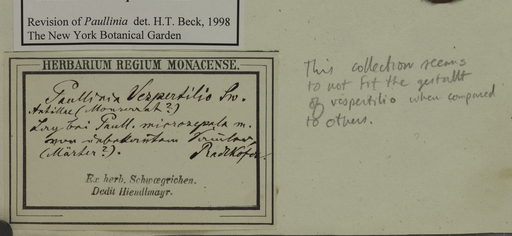 Revision of Paullinia det. H.T. Beck, 1998
The New York Botanical Garden
HERBARIUM REGIUM MONACENSE.
Paullinia Vespertilio Sw.
Antillae (Monserrat?)
Lag bei Paull. microsepala m.
von unbekanntem
(Märter?). Radlkofer
Ex herb. Schwægrichen.
Dedit Hiendlmayr.
This collection seems
to not fit the gestallt
of vespertilio when compared
to others.